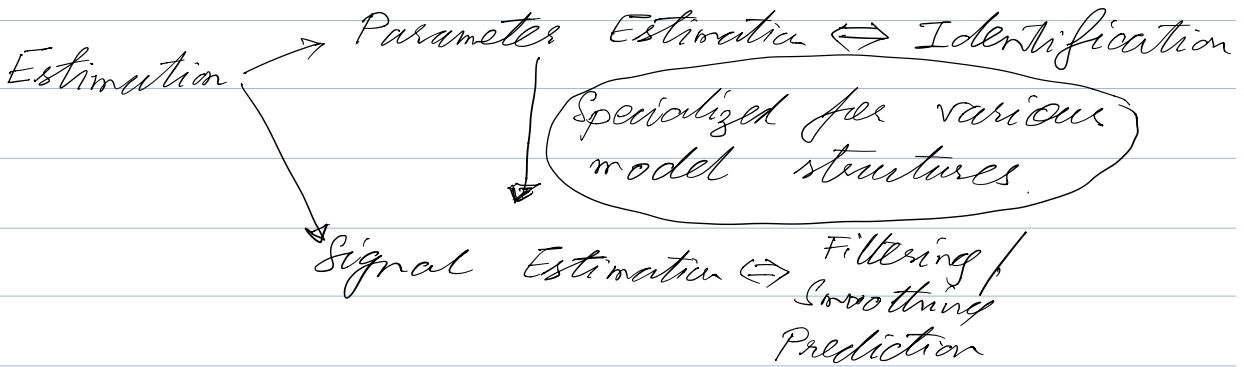 Parameter Estimation ⇔ Identification
Estimation
Specialized for various
model structures.
Signal Estimation ⇔ Filtering /
Smoothing
Prediction